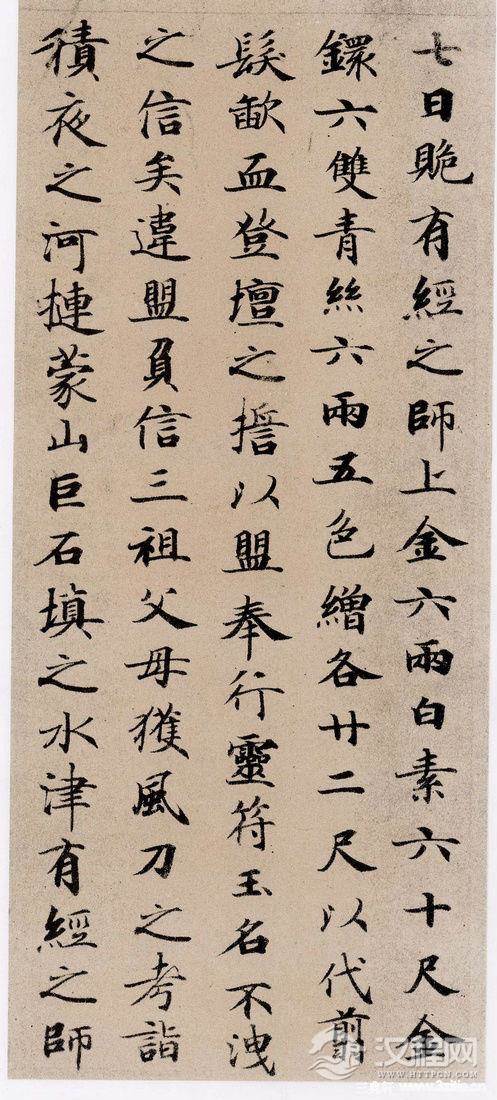 七日賍有經之師上金六兩白素六十尺金
鐶六雙青絲六兩五色繒各廿二尺以代翦
髮歃血登壇之誓以盟奉行靈符玉名不洩
之信矣違盟負信三祖父母獲風刀之考詣
積夜之河摙蒙山巨石填之水津有經之師
汉程网
WWW.HTTPCN.COM